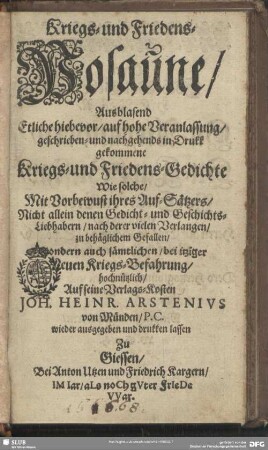 Kriegs- und Friedens-
Posaune/
Ausblasend
Etliche hiebevor/ auf hohe Veranlassung/
geschrieben- und nachgehends in Drukk
gekommene
Kriegs- und Friedens-Gedichte
Wie solche/
Mit Vorbewust ihres Auf-Sätzers/
Nicht allein denen Gedicht- und Geschichts-
Liebhabern/ nach derer vielen Verlangen/
zu behäglichem Gefallen/
Sondern auch sämtlichen/ bei itziger
Neuen Kriegs-Befahrung/
hochnützlich/
Auf seine Verlags-Kosten
JOH. HEINR. ARSTENIVS
von Münden/ P.C.
wieder ausgegeben und drukken lassen
Zu
Giessen/
Bei Anton Utzen und Friedrich Kargern/
IM Iar/ aLs noCh gVter FrIeDe
VVar.
1668.
SLUB
DFG